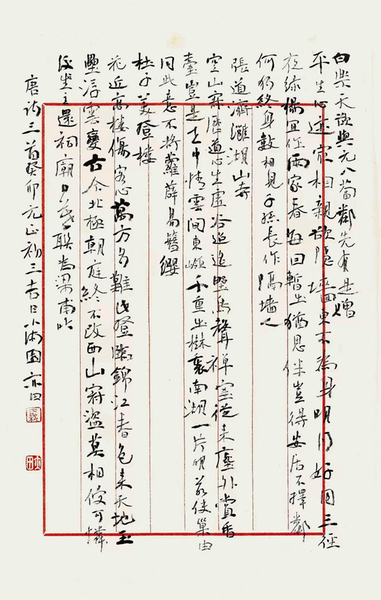 白樂天欲與元八蔔鄰先有是贈
平生心迹最相親欲隱墻東不為身明月好同三徑
夜綠楊宜作兩家春每因暫出猶思伴豈得安居不擇鄰
何獨終身數相見子孫長作隔墻人
張道濟灉湖山寺
空山寂歷道心生虛谷迢遙野鳥聲禪室從來塵外賞香
臺豈是世中情雲間東嶺千重出樹裏南湖一片明若使巢由
同此意不將蘿薜易簪纓
杜子美登樓
花近高樓傷客心萬方多難此登臨錦江春色來天地玉
壘浮雲變古今北極朝庭終不改西山寇盜莫相侵可憐
後主還祠廟日暮聊為梁甫吟
唐詩三首癸卯元正初三吉日小園亦由